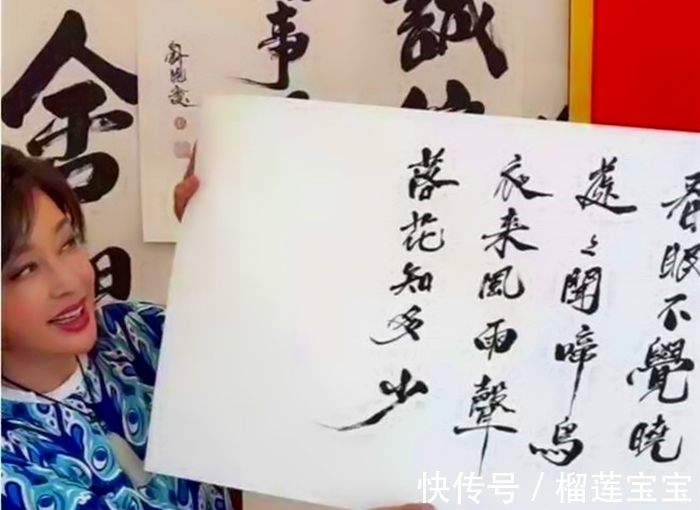 春眠不覺曉
處々聞啼鳥
夜来風雨聲
落花知多少
誠
事
劉曉慶
舍
快传号 / 榴莲宝宝